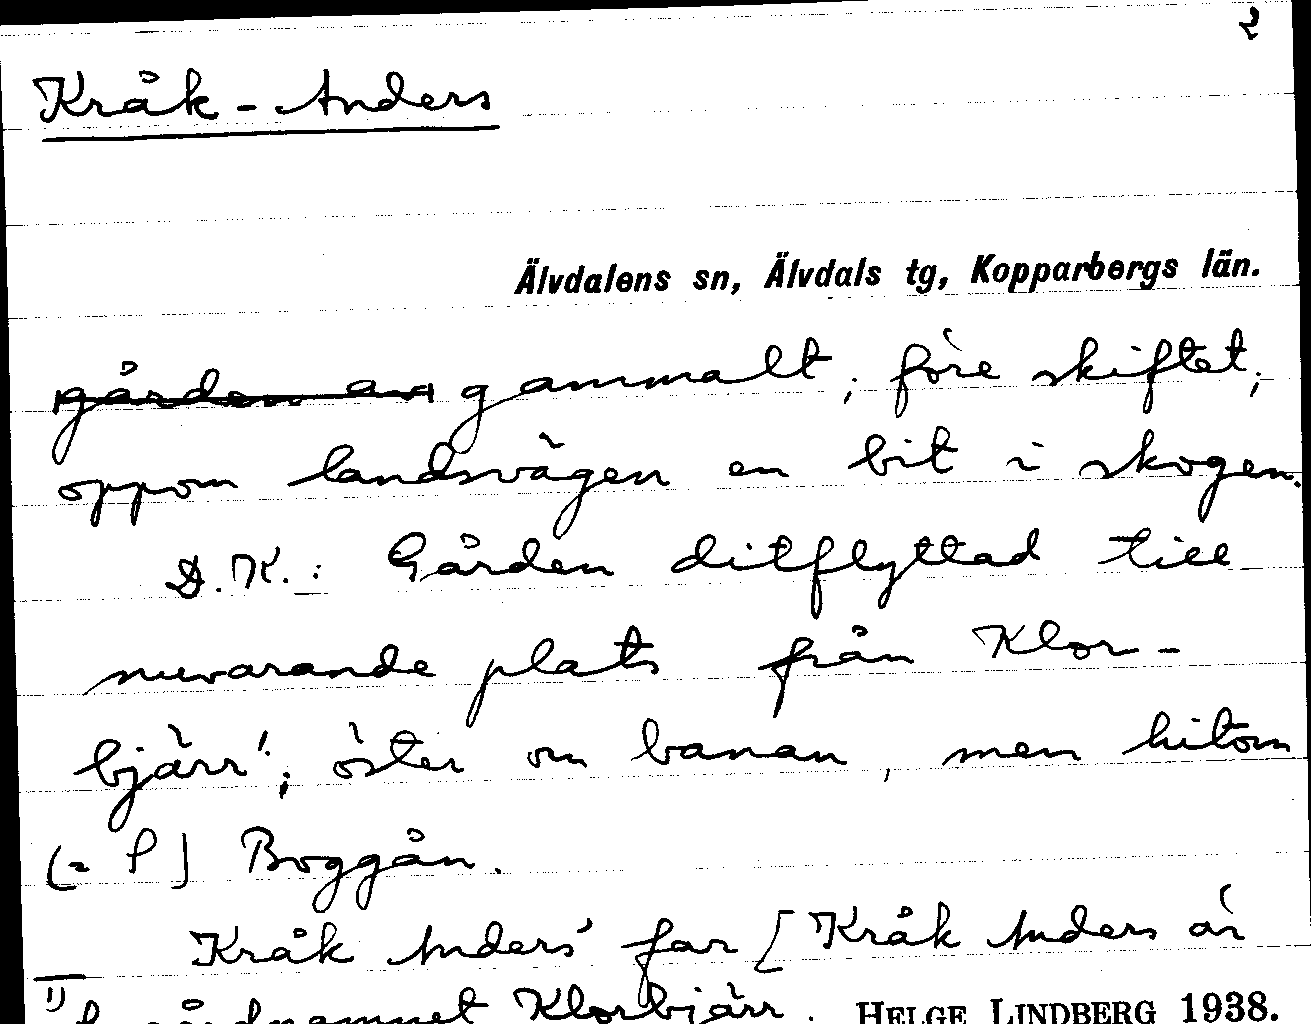 2
Kråk-Anders
Älvdalens sn, Älvdals tg, Kopparbergs län.
gården av gammalt, före skiftet,
oppom landsvägen en bit i skogen.
D.K.: Gården ditflyttad till
nuvarande plats från Klor-
bjärr¹; öster om banan, men hitom
(= S) Boggån.
Kråk Anders' far [Kråk Anders är
1) gårdnamnet Klorbjärr. HELGE LINDBERG 1938.